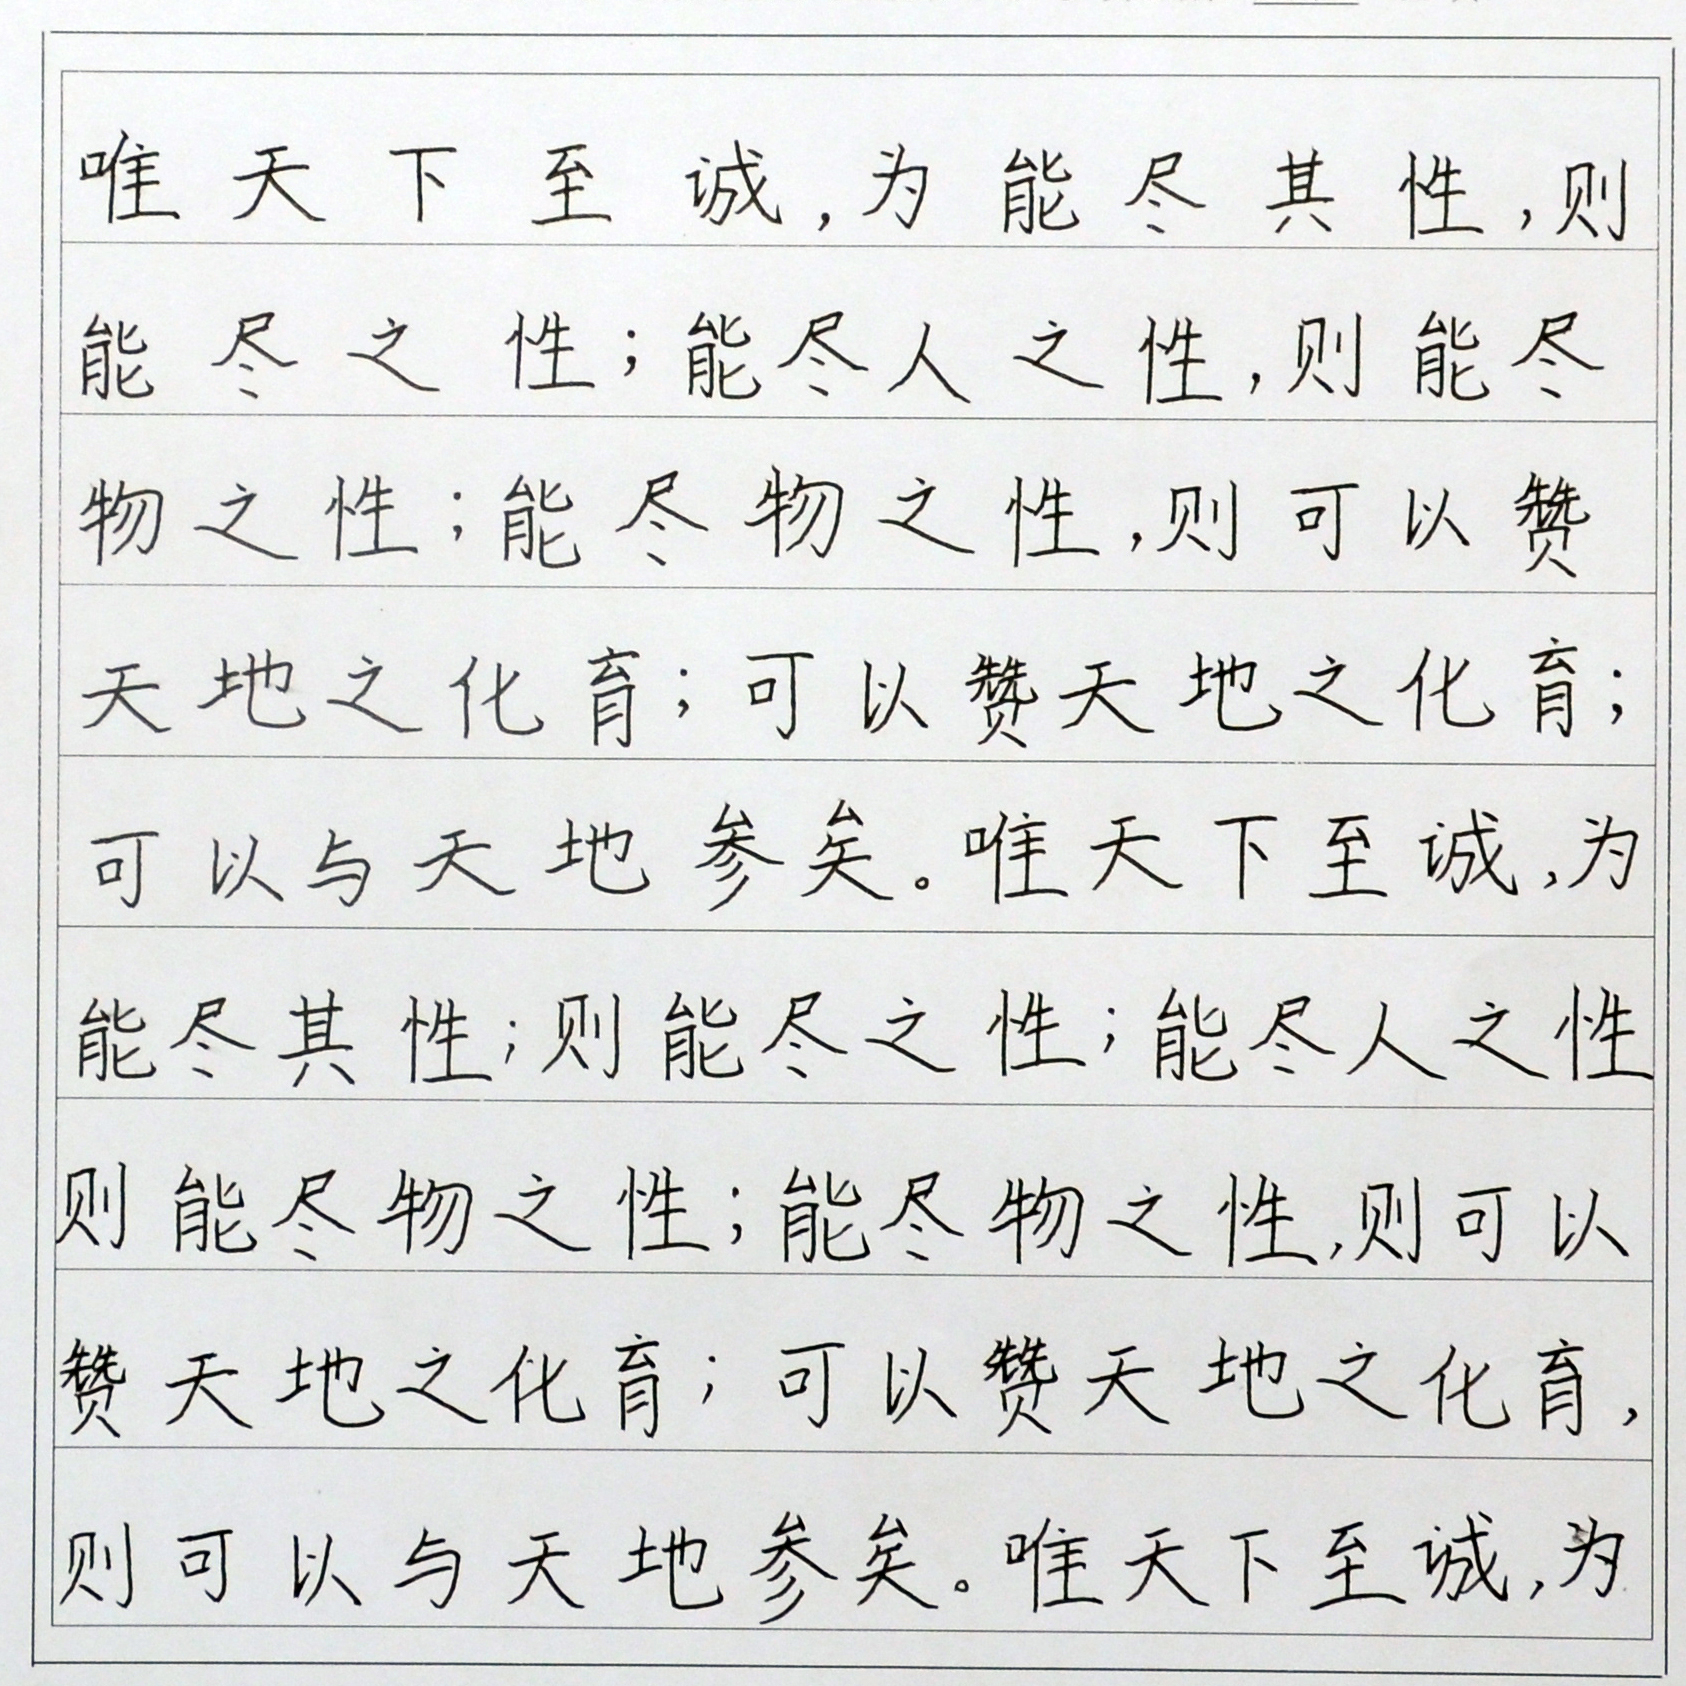 唯天下至诚,为能尽其性,则
能尽之性;能尽人之性,则能尽
物之性;能尽物之性,则可以赞
天地之化育;可以赞天地之化育;
可以与天地参矣。唯天下至诚,为
能尽其性;则能尽之性;能尽人之性
则能尽物之性;能尽物之性,则可以
赞天地之化育;可以赞天地之化育,
则可以与天地参矣。唯天下至诚,为